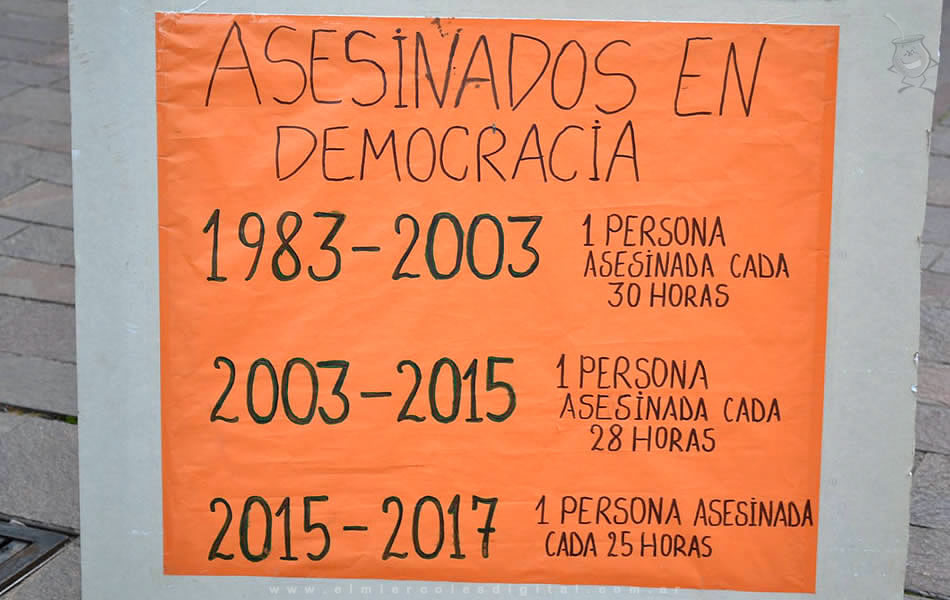 ASESINADOS EN
DEMOCRACIA
1983-2003
1 PERSONA
ASESINADA CADA
30 HORAS
2003-2015
1 PERSONA
ASESINADA CADA
28 HORAS
2015-2017
1 PERSONA ASESINADA
CADA 25 HORAS
www.elmiercolesdigital.com.ar